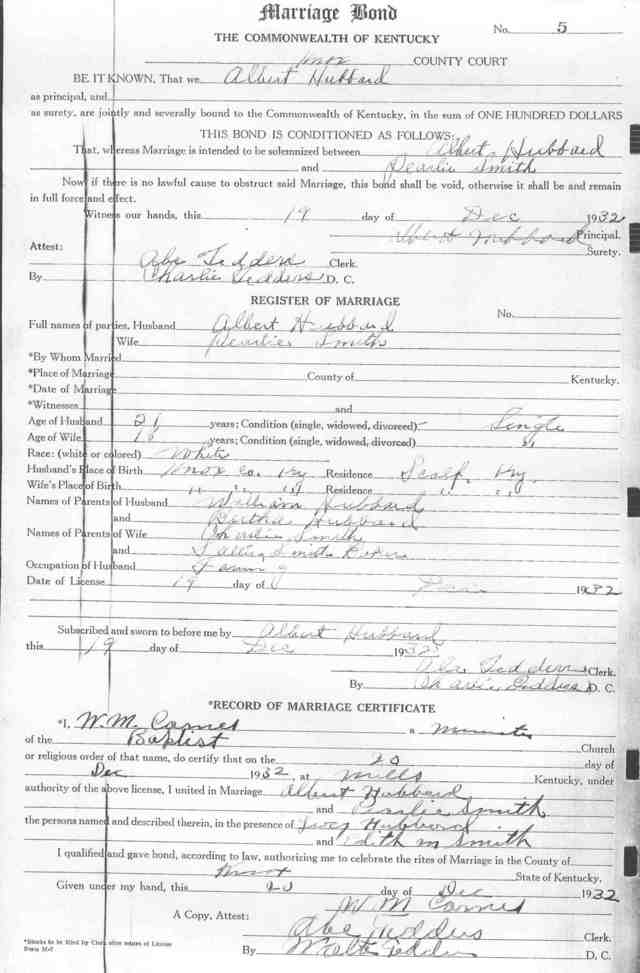 Marriage Bond
No. 5
THE COMMONWEALTH OF KENTUCKY
Knox COUNTY COURT
BE IT KNOWN, That we Albert Hubbard
as principal, and
as surety, are jointly and severally bound to the Commonwealth of Kentucky, in the sum of ONE HUNDRED DOLLARS
THIS BOND IS CONDITIONED AS FOLLOWS:
That, whereas Marriage is intended to be solemnized between Albert Hubbard
and Pearlie Smith
Now if there is no lawful cause to obstruct said Marriage, this bond shall be void, otherwise it shall be and remain
in full force and effect.
Witness our hands, this 19 day of Dec 1932
Albert Hubbard Principal.
Surety.
Attest:
Abe Tedders Clerk.
By Charlie Tedders D. C.
REGISTER OF MARRIAGE
No.
Full names of parties, Husband Albert Hubbard
Wife Pearlie Smith
*By Whom Married
*Place of Marriage County of Kentucky.
*Date of Marriage
*Witnesses and
Age of Husband 21 years; Condition (single, widowed, divorced) Single
Age of Wife years; Condition (single, widowed, divorced) "
Race: (white or colored) White
Husband's Place of Birth Knox Co. Ky Residence Scalf, Ky.
Wife's Place of Birth " " " Residence " "
Names of Parents of Husband William Hubbard
and Bertha Hubbard
Names of Parents of Wife Charlie Smith
and Smith
Occupation of Husband Farming
Date of License 19 day of Dec 1932
Subscribed and sworn to before me by Albert Hubbard
this 19 day of Dec 1932
Abe Tedders Clerk.
By Charlie Tedders D. C.
*RECORD OF MARRIAGE CERTIFICATE
*I, W. M. Carnes a Minister
of the Baptist Church
or religious order of that name, do certify that on the 20 day of
Dec 1932, at Mills Kentucky, under
authority of the above license, I united in Marriage Albert Hubbard
and Pearlie Smith
the persons named and described therein, in the presence of Hubbard
and Edith M Smith
I qualified and gave bond, according to law, authorizing me to celebrate the rites of Marriage in the County of
Knox State of Kentucky.
Given under my hand, this 20 day of Dec 1932
W M Carnes
A Copy, Attest:
Abe Tedders Clerk.
By Walter Tedders D. C.
*Blanks to be filled by Clerk after return of License
Form M-7